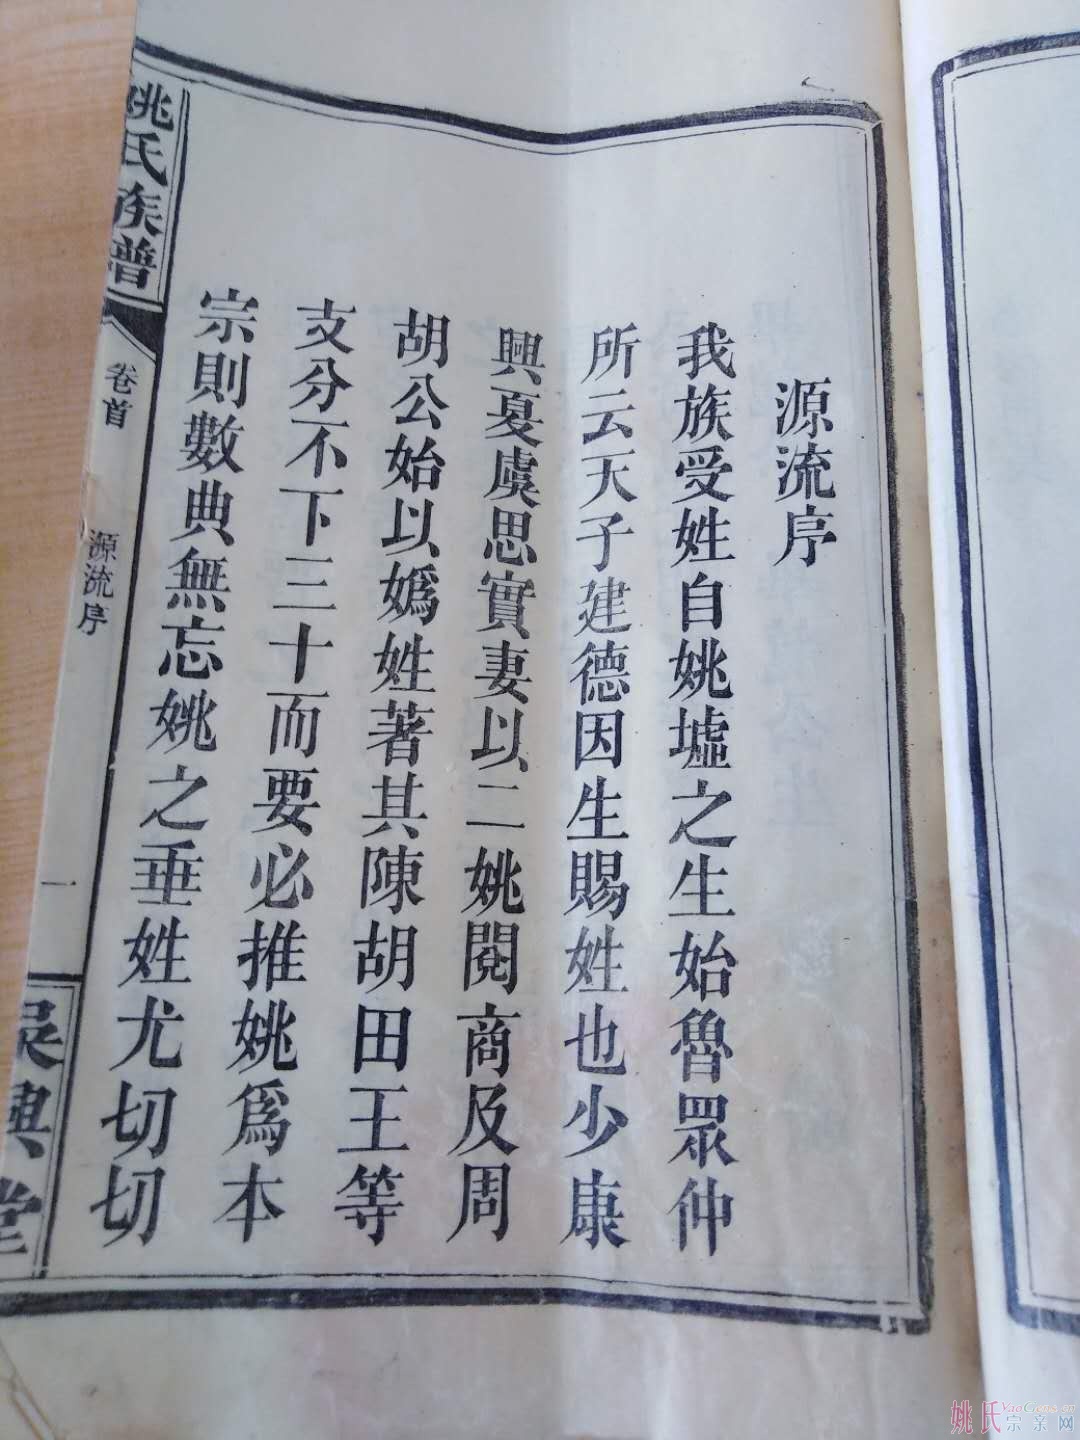 源流序
我族受姓自姚墟之生始魯眾仲
所云天子建德因生賜姓也少康
興夏虞思實妻以二姚閱商及周
胡公始以媯姓著其陳胡田王等
支分不下三十而要必推姚爲本
宗則數典無忘姚之垂姓尤切切
姚氏族譜
卷首
源流序
一
吳興堂
姚氏YaoGens.cn
宗亲网